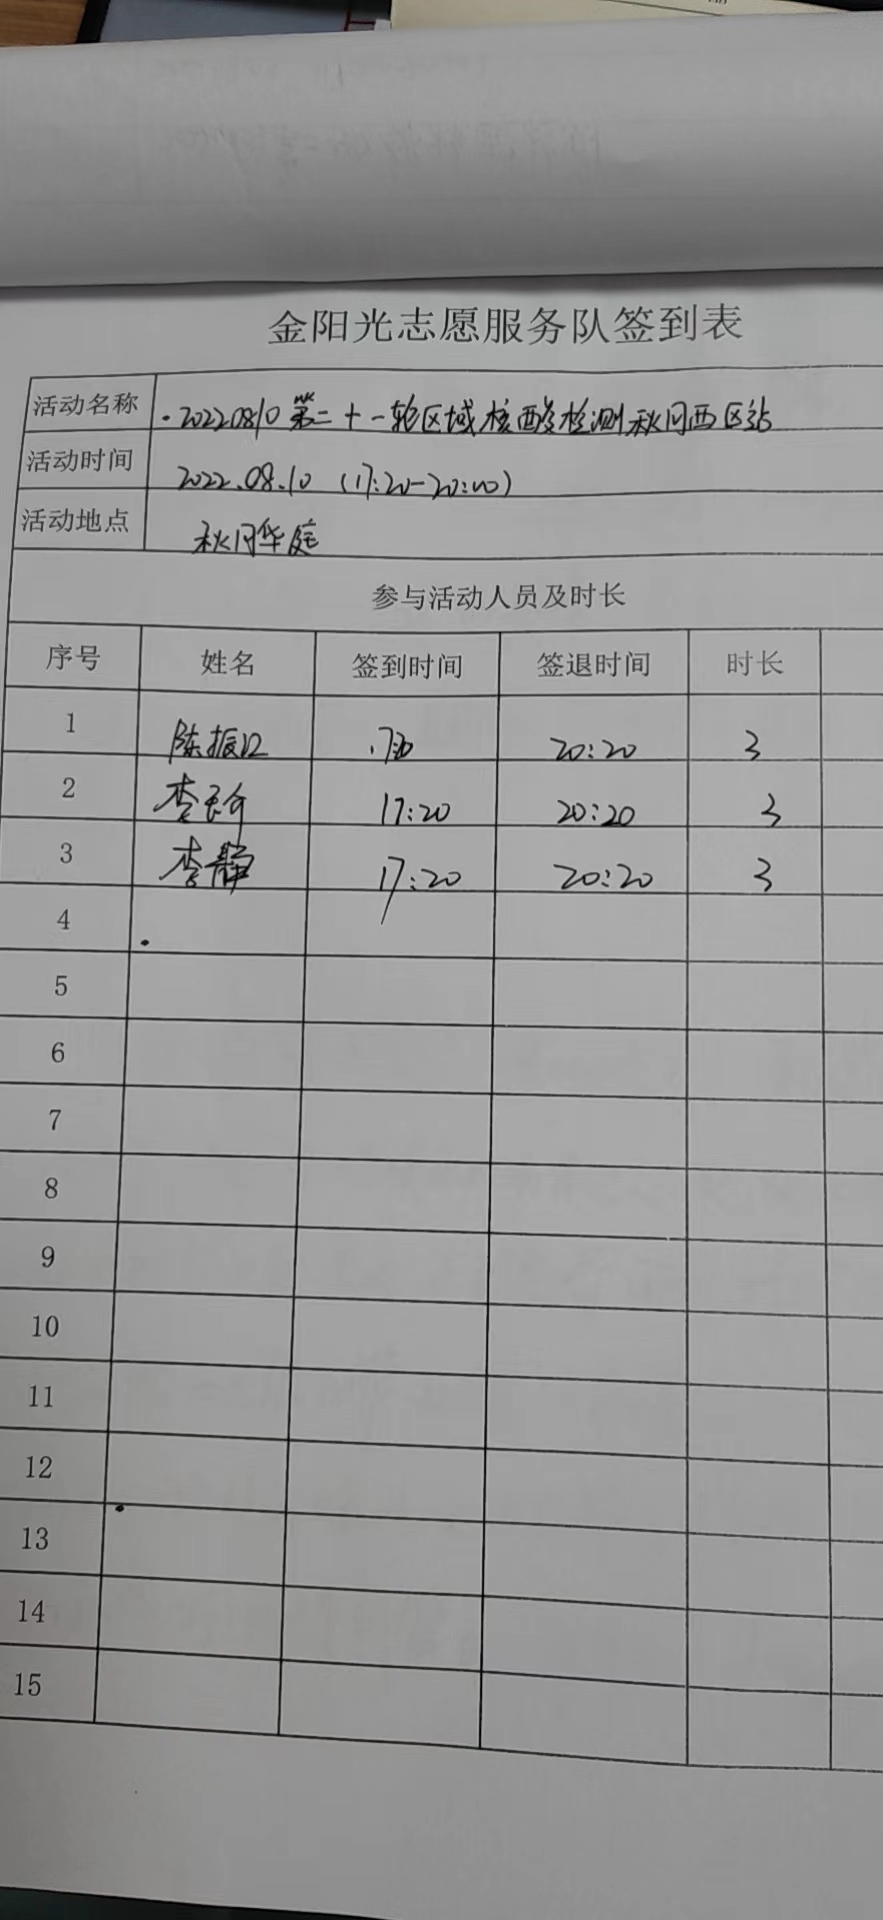 金阳光志愿服务队签到表
活动名称 20220810第二十一轮区域核酸检测秋月西区站
活动时间 2022.08.10 (17:20-20:20)
活动地点 秋月华庭
参与活动人员及时长
序号 姓名 签到时间 签退时间 时长
1 陈振 20:20 3
2 李 17:20 20:20 3
3 李静 17:20 20:20 3
4
5
6
7
8
9
10
11
12
13
14
15